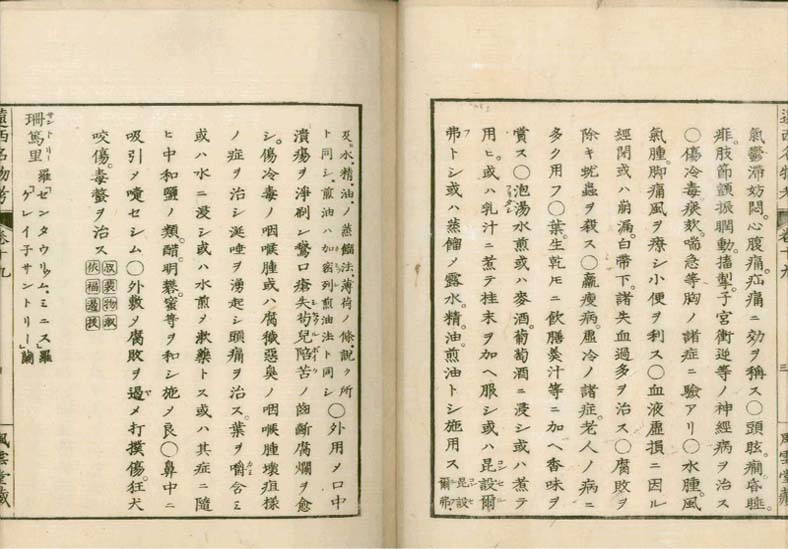 遠西名物考　巻十九　三　風雲堂蔵
氣鬱滞妨悶。心腹痛疝痛ニ効ヲ称ス〇頭眩。癇。昏睡
痱。肢節顫振瞤動。搐搦。子宮衝逆等ノ神經病ヲ治ス
〇傷冷毒。痰欬。喘急等胸ノ諸症ニ驗アリ〇水腫。風
氣腫。脚痛風ヲ療シ小便ヲ利ス〇血液虚損ニ因ル
經閉或ハ崩漏。白帯下。諸失血過多ヲ治ス〇腐敗ヲ
除キ蚘蟲ヲ殺ス〇羸瘦病。虚冷ノ諸症。老人ノ病ニ
多ク用フ〇葉。生乾圧ニ飲膳羹汁等ニ加ヘ香味ヲ
賞ス〇泡湯水煎或ハ麥酒。葡萄酒ニ浸シ或ハ煮テ
用ヒ或ハ乳汁ニ煮テ桂末ヲ加ヘ服シ或ハ昆設爾
弗トシ或ハ蒸餾ノ露水。精。油。煎油トシ施用ス 昆設爾弗
及。水。精。油ノ蒸餾法。薄荷ノ條。説ク所
ト同シ。煎油ハ加密列煎油法ト同シ〇外用メ口中
潰瘍ヲ淨刷シ鵞口瘡失苟兒陷苦ノ齒齗腐爛ヲ愈
シ。傷冷毒ノ咽喉腫或ハ腐穢惡臭ノ咽喉腫壊疽様
ノ症ヲ治シ涎唾ヲ湧起シ頭痛ヲ治ス。葉ヲ嚼含ミ
或ハ水ニ浸シ或ハ水煎メ漱藥トス或ハ其症ニ隨
ヒ中和鹽ノ類。醋。明礬。蜜等ヲ和シ施メ良〇鼻中ニ
吸引メ嚏セシム〇外敷メ腐敗ヲ遏メ打撲傷。狂犬
咬傷。毒螫ヲ治ス
珊篤里 羅「センタウリム。ミニス」羅「ゲレイ子サントリー」蘭
遠西名物考　巻十九　風雲堂蔵